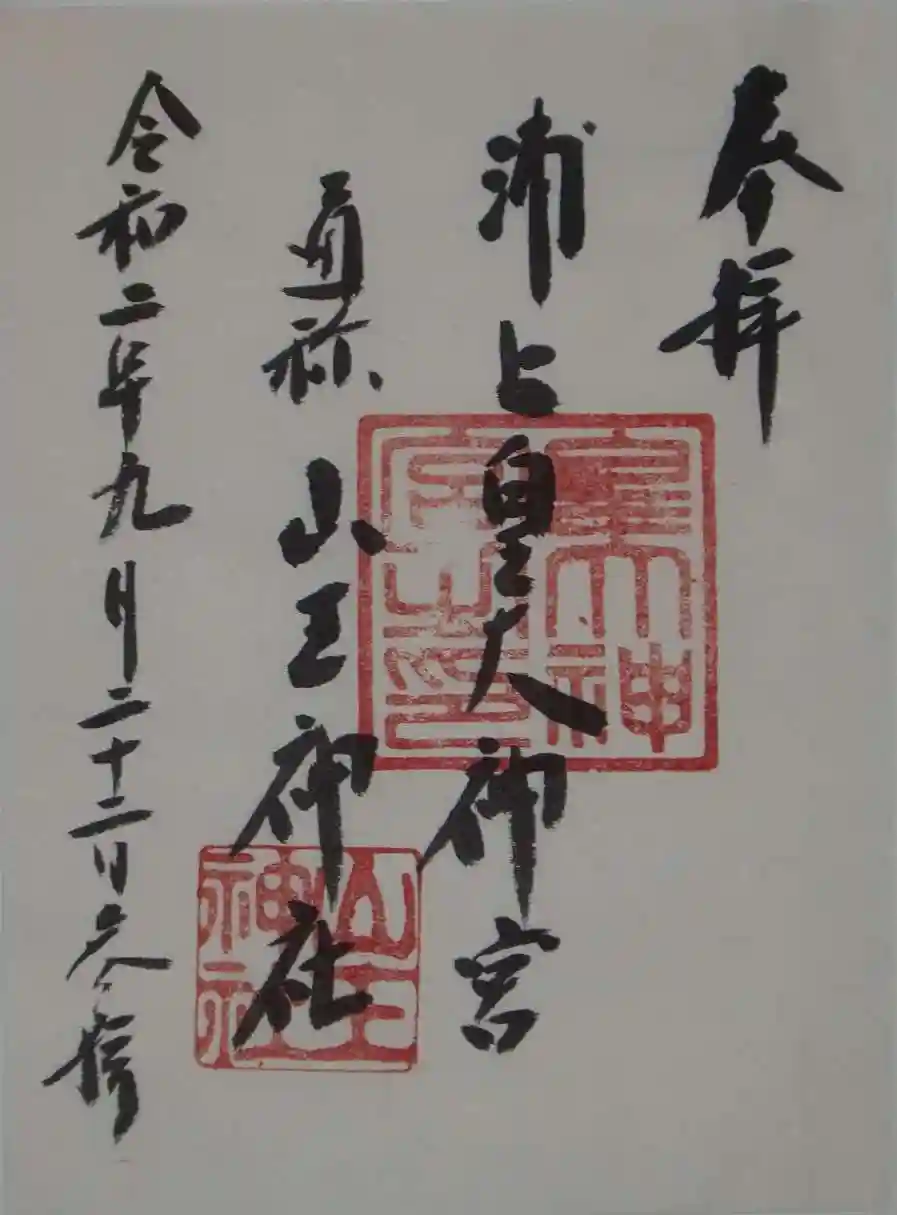 奉拝
浦上皇大神宮
通称 山王神社
令和二年九月二十二日参拝
皇大神宮之印
山王神社